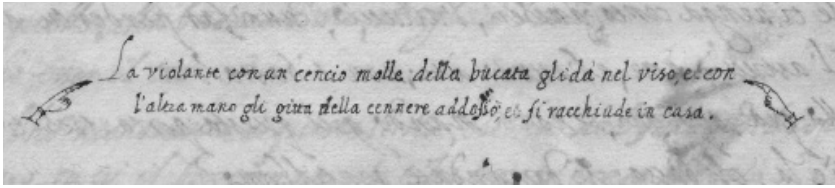 La violante con un cencio molle della bucata gli dà nel viso, et con
l'altra mano gli gitta della cennere addosso; et si racchiude in casa.